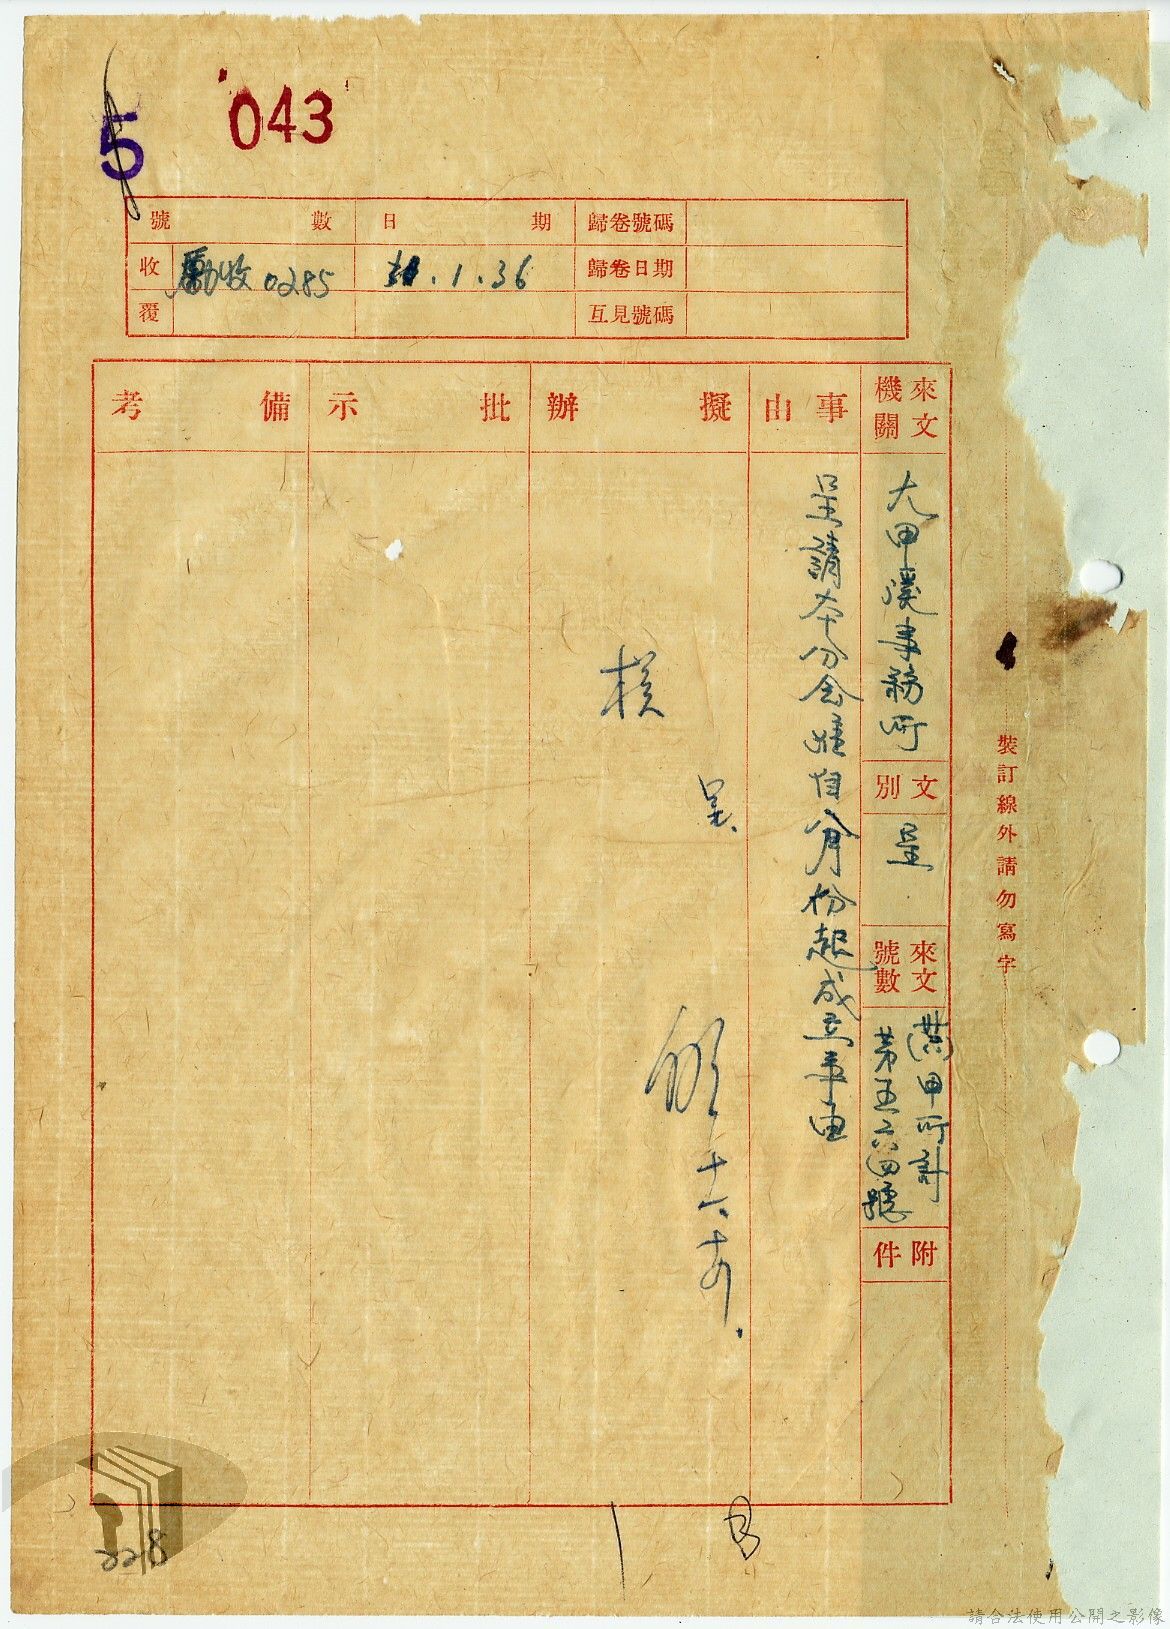 5
043
號數 日期 歸卷號碼
收 勵收0285 .1.36 歸卷日期
覆 互見號碼
來文機關
大甲溪事務所
文別
呈
來文號數
甲所計
第五六四號
附件
事由
呈請本分會准自 月份起成立事由
擬辦
呈
核
十六
批示
備考
裝訂線外請勿寫字
1 B
228
請合法使用公開之影像